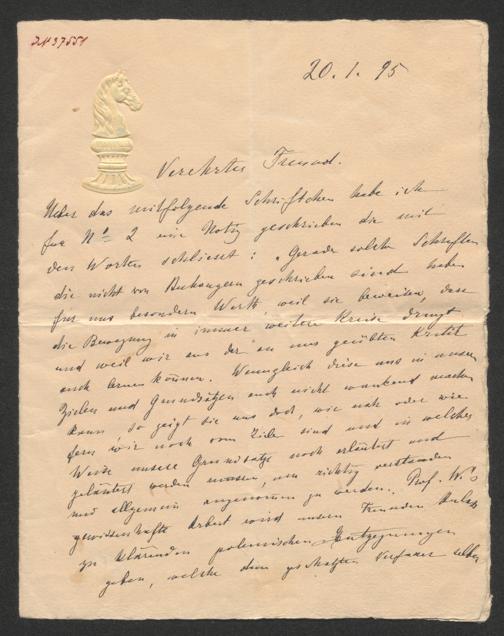 I.N 37551
20. 1. 95
Verehrter Freund.
Ueber das mitfolgende Schriftchen habe ich
fur No 2 eine Notiz geschrieben die mit
den Worten schliesst: „Gerade solche Schriften
die nicht von geschrieben sind haben
fur uns besondern Werth, weil sie beweisen, dass
die Bewegung in immer weitere Kreise dringt
und weil wir aus der an uns geübten Kritik
auch lernen können. Wenngleich diese uns in unsern
Zielen und Grundsätzen auch nicht wankend machen
kann so zeigt sie uns doch, wie nah oder wie
fern wir noch vom Ziele sind und in welcher
Weise unsere Grundsätze noch erläutert und
geläutert werden müssen, um richtig verstanden
und allgemein angenommen zu werden. Prof. W.'s
gewissenhafte Arbeit wird unsern Freunden Anlass
zu klärenden polemischen Entgegnungen
geben, welche dem geschätzten Verfasser selber